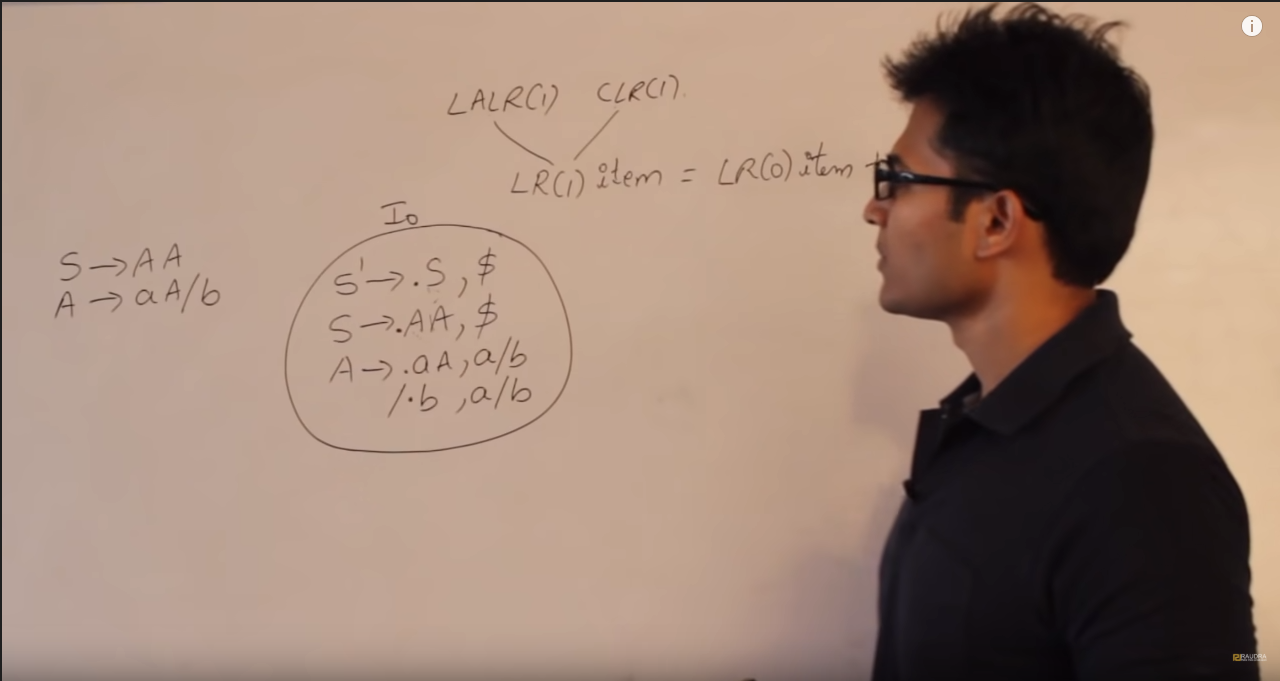 LALR(1) CLR(1).
LR(1) item = LR(0) item +
I₀
S → AA
A → aA/b
S' → .S , $
S → .AA, $
A → .aA, a/b
/.b , a/b